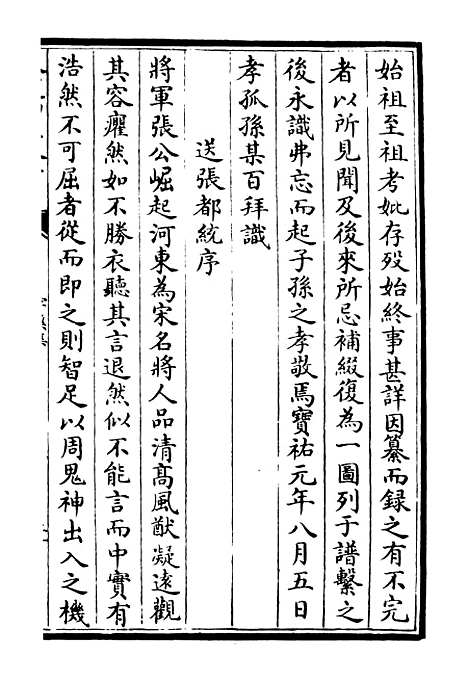 始祖至祖考妣存歿始終事甚詳因纂而録之有不完
者以所見聞及後來所忌補綴復為一圖列于譜繫之
後永識弗忘而起子孫之孝敬焉寳祐元年八月五日
孝孤孫某百拜識
送張都統序
將軍張公崛起河東為宋名將人品清髙風猷凝逺觀
其容癯然如不勝衣聽其言退然似不能言而中實有
浩然不可屈者從而即之則智足以周鬼神出入之機